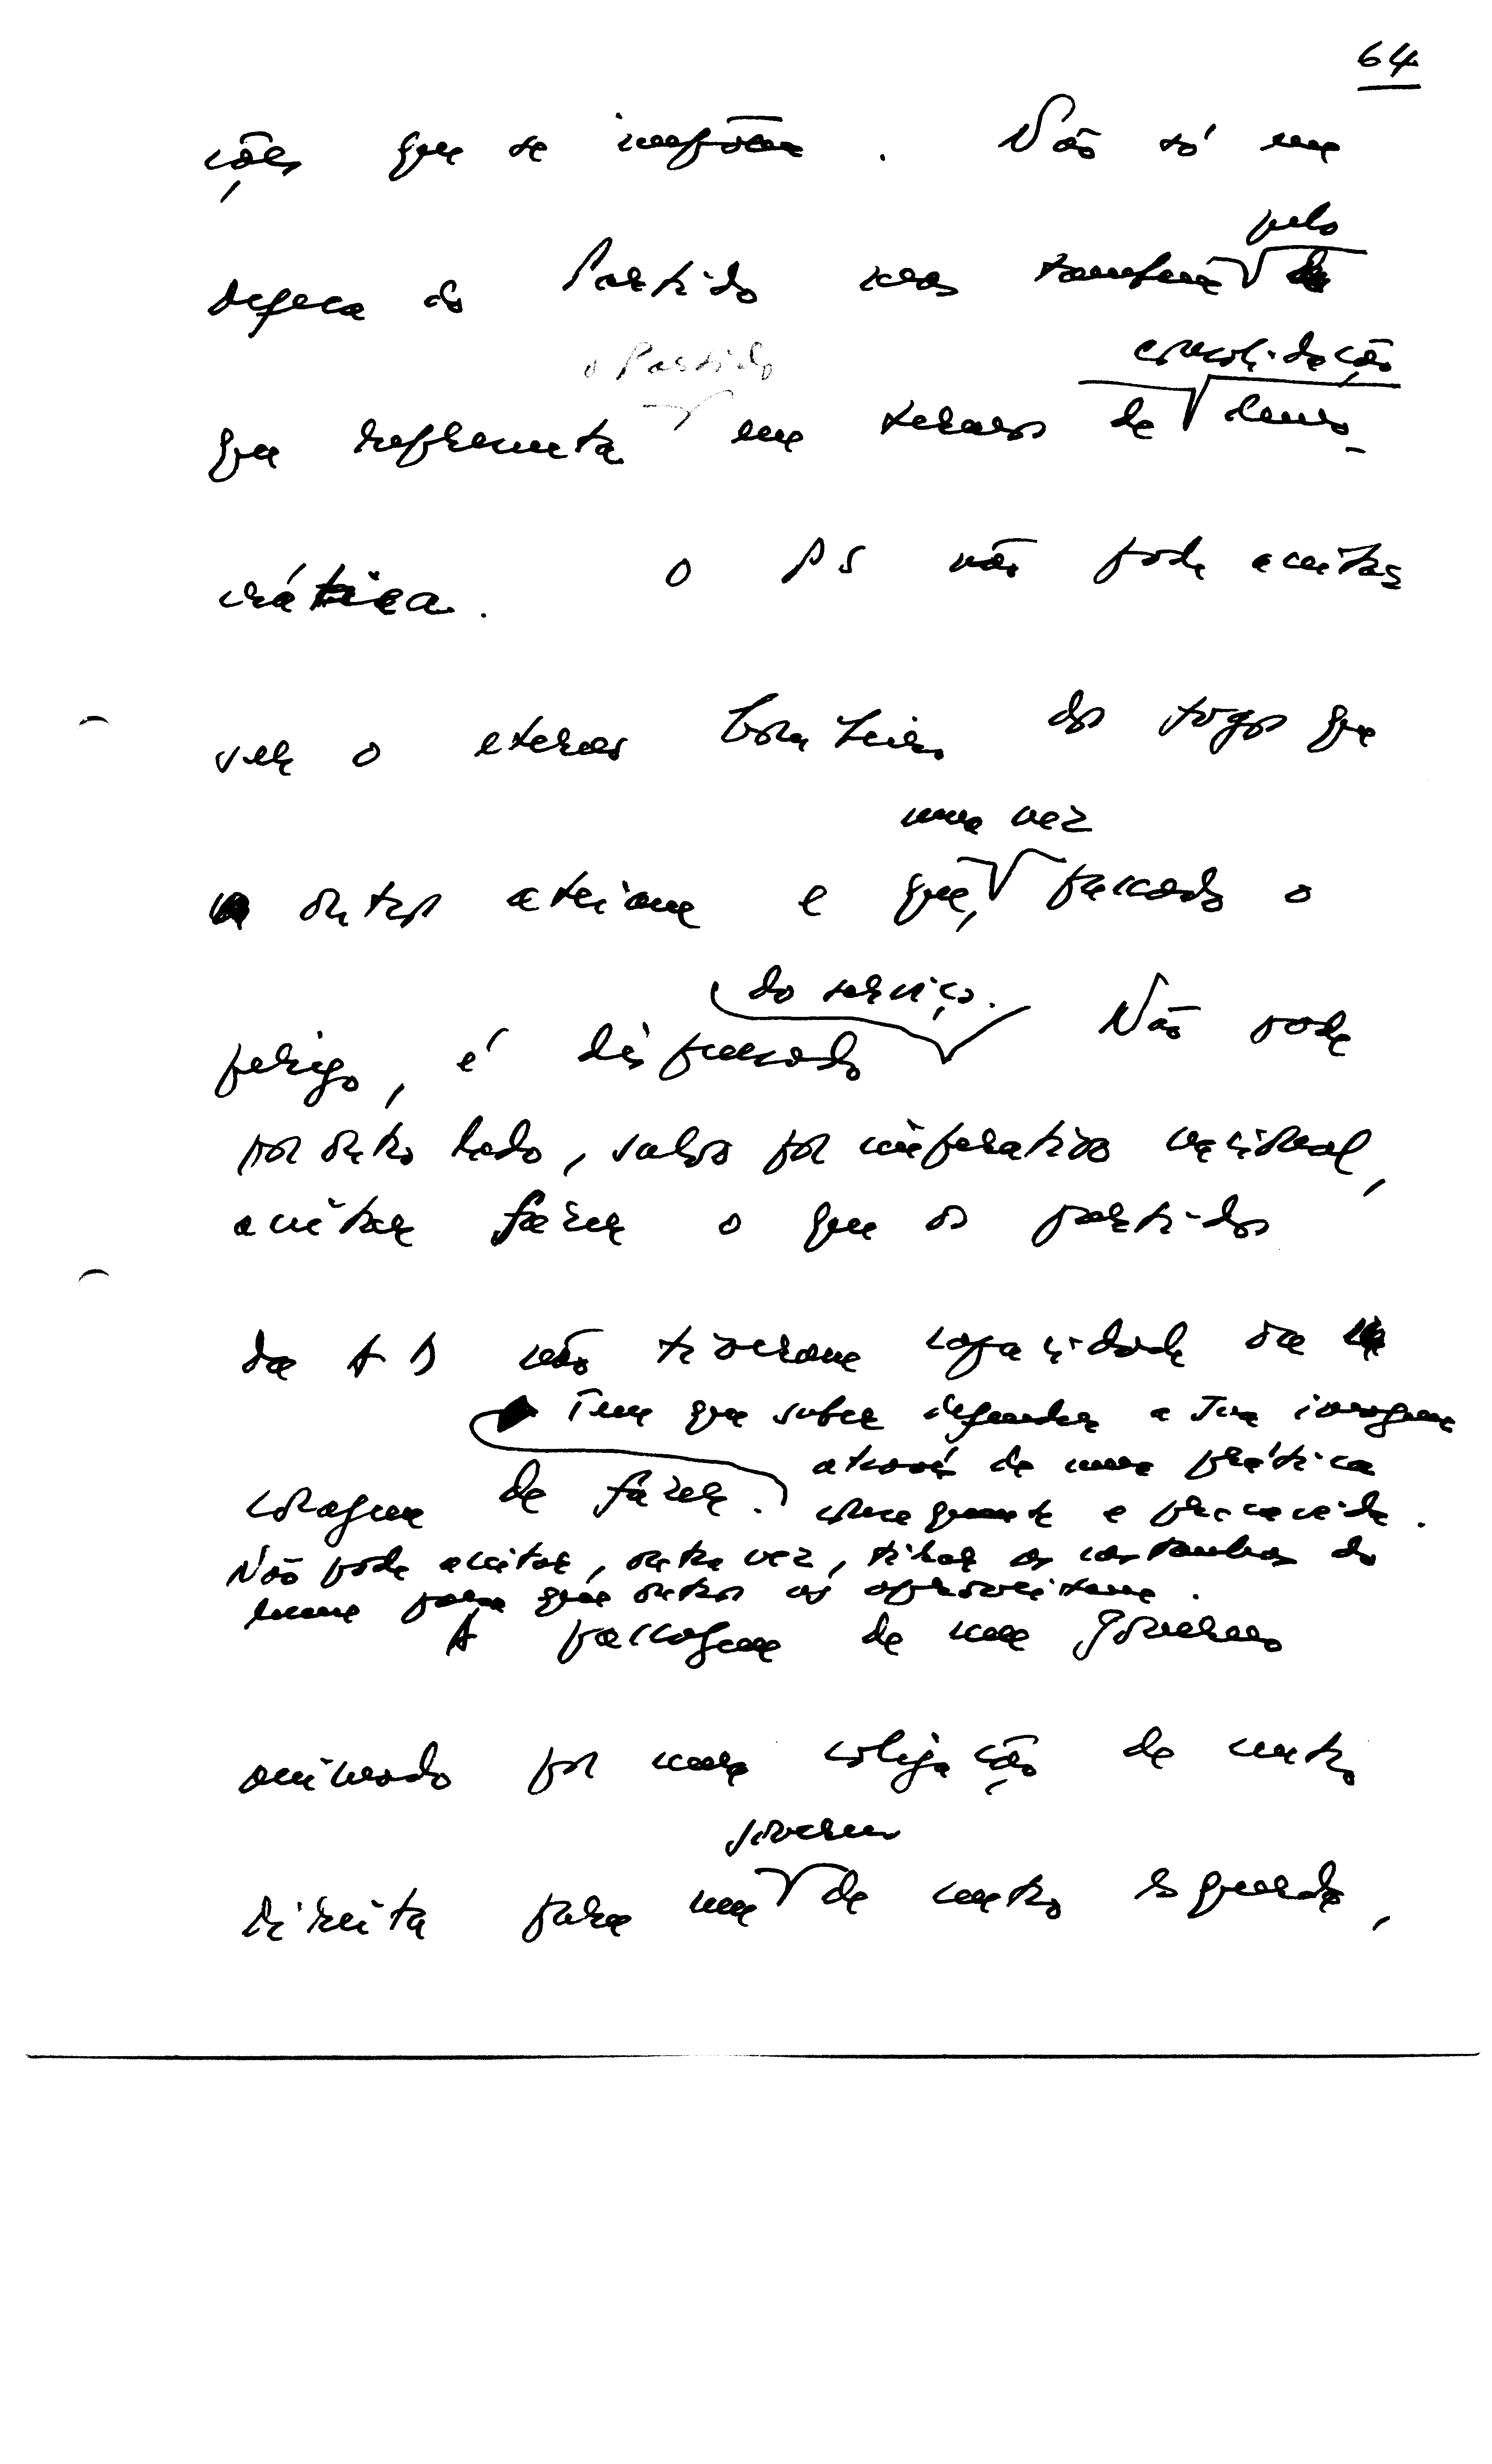 64
ções que se impõem. Não só em
pelo
defesa do Partido mas também
o Partido
consolidação
que representa em termos de demo-
crática. O PS não pode aceitar
ser o eterno bombeiro dos fogos que
uma vez
outros ateiam e que, passado o
do serviço.
perigo, é dispensado Não pode
por outro lado, salvo por imperativo nacional,
aceitar fazer o que os partidos
da AD não tiveram capacidade ou
Tem que saber defender a sua imagem
através de uma prática
coragem de fazer. consequente e
Não pode aceitar, outra vez, tirar as castanhas do
lume para que outros as aproveitem.
A passagem de um Governo
animado por uma coligação de centro
governo
direita para um de centro esquerda,